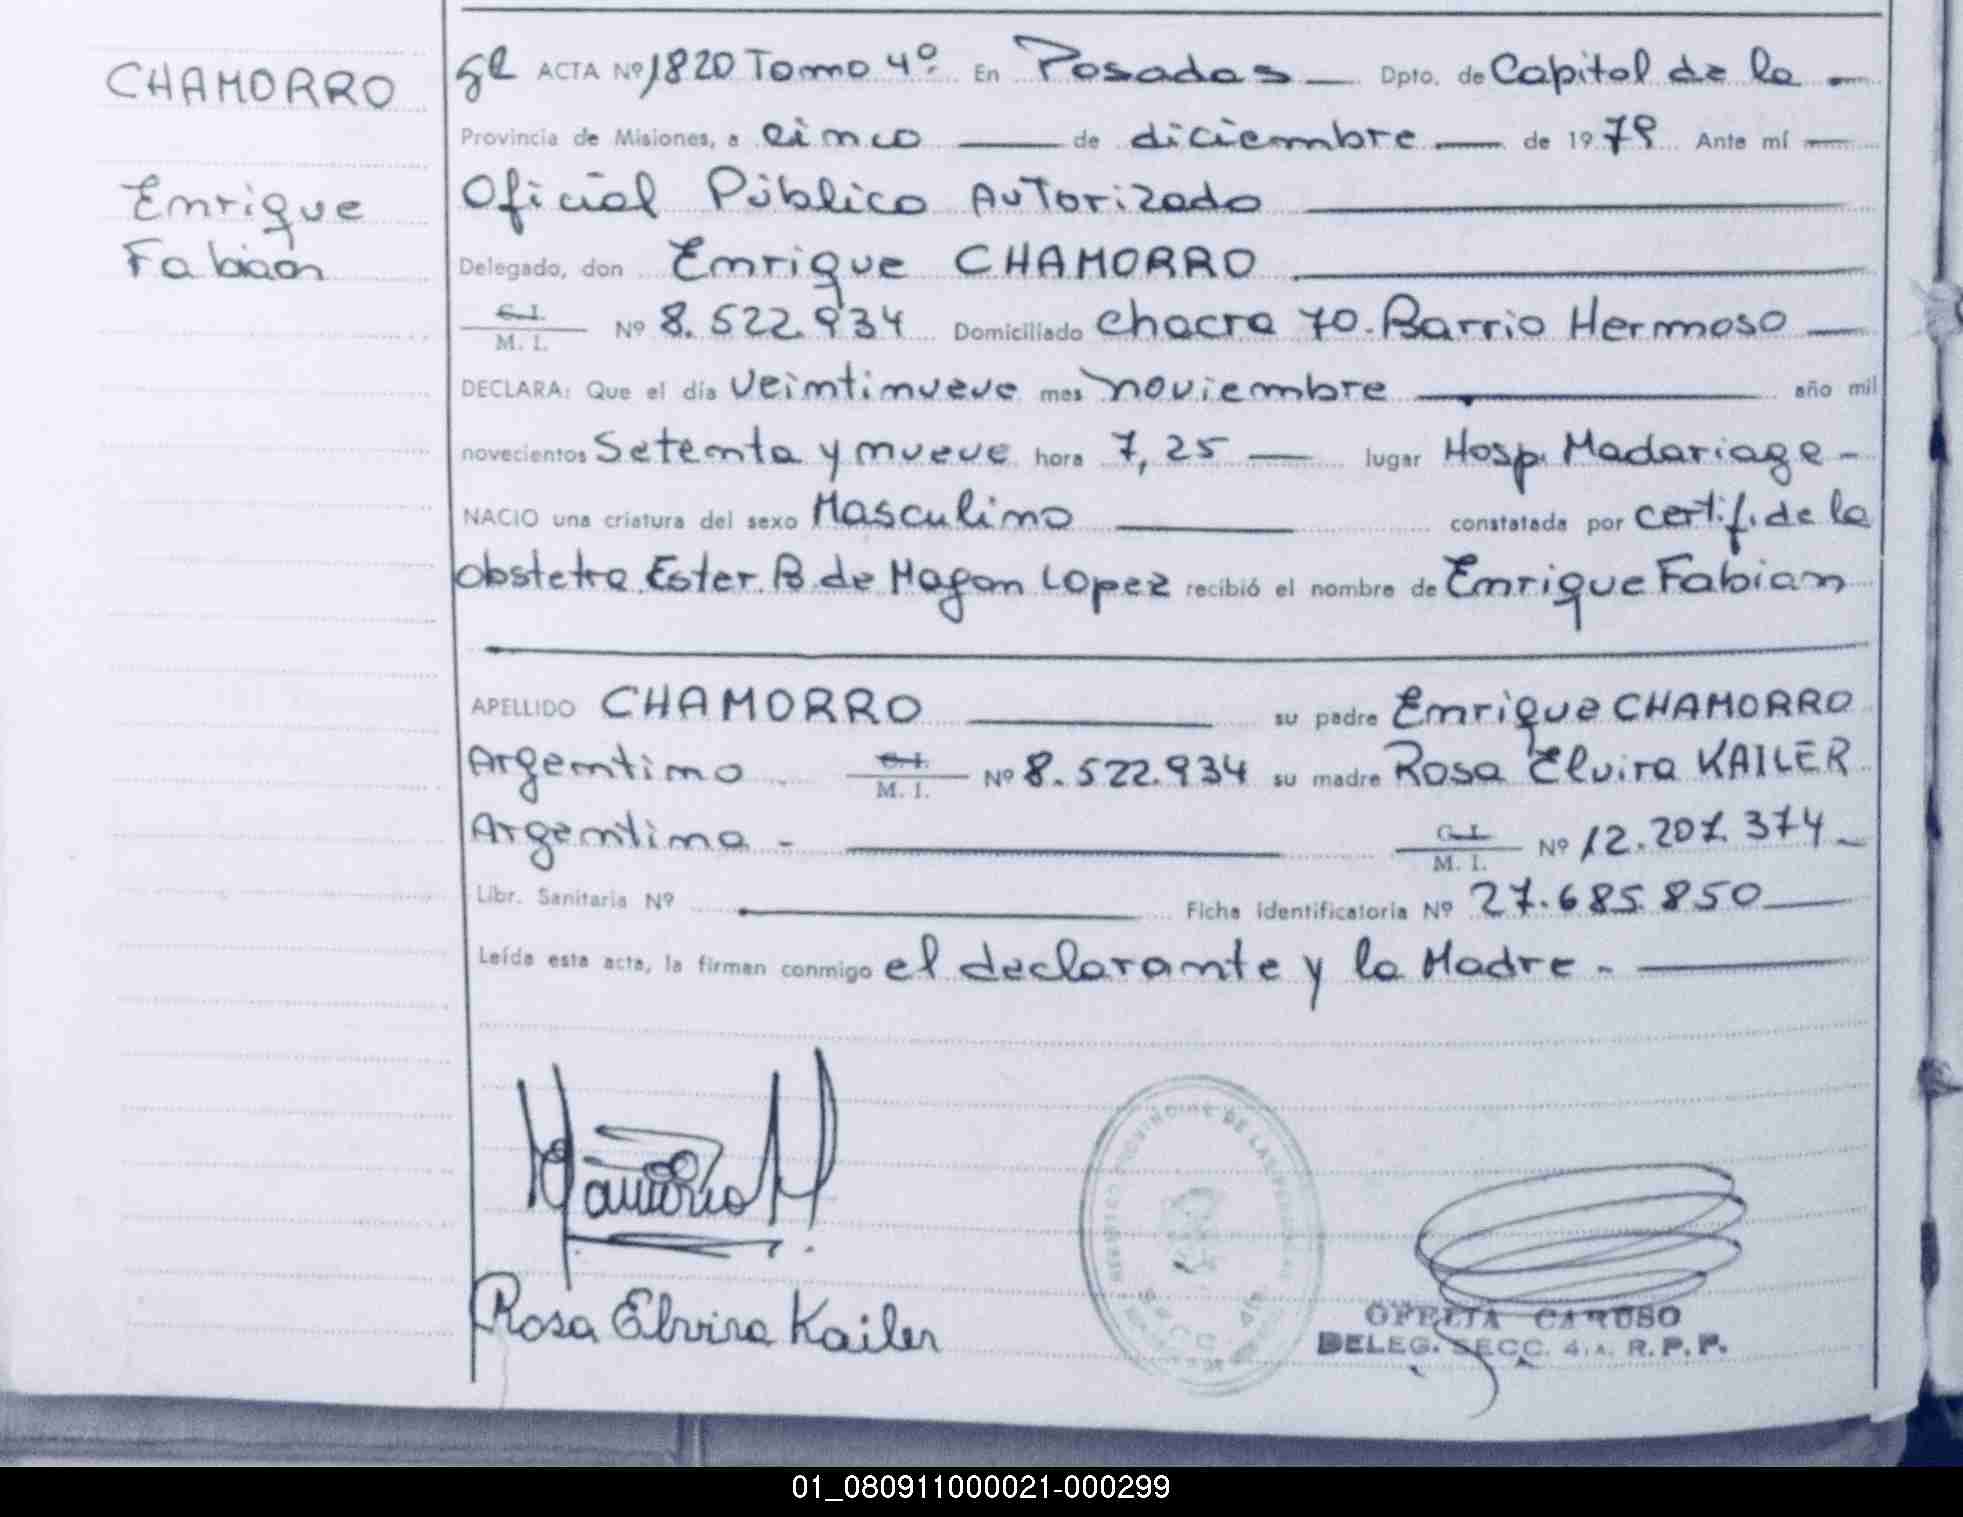 CHAMORRO
Enrique
Fabian
ACTA Nº 1820 Tomo 4º En Posadas Dpto. de Capital de la
Provincia de Misiones, a cinco de diciembre de 1979 Ante mí
Oficial Público Autorizado
Delegado, don Enrique CHAMORRO
C. I.
M. I. Nº 8.522.934 Domiciliado chacra 70. Barrio Hermoso
DECLARA: Que el día veintinueve mes noviembre año mil
novecientos Setenta y nueve hora 7,25 lugar Hosp. Madariaga -
NACIO una criatura del sexo Masculino constatada por certif. de la
obstetra Ester. B. de Magan Lopez recibió el nombre de Enrique Fabian
APELLIDO CHAMORRO su padre Enrique CHAMORRO
Argentino C. I. M. I. Nº 8.522.934 su madre Rosa Elvira KAILER
Argentina - C. I. M. I. Nº 12.207.374 -
Libr. Sanitaria Nº Ficha identificatoria Nº 27.685.850
Leída esta acta, la firman conmigo el declarante y la Madre. -
Rosa Elvira Kailer
OFELIA CARUSO
DELEG. SECC. 4.A. R. P. P.
01_080911000021-000299